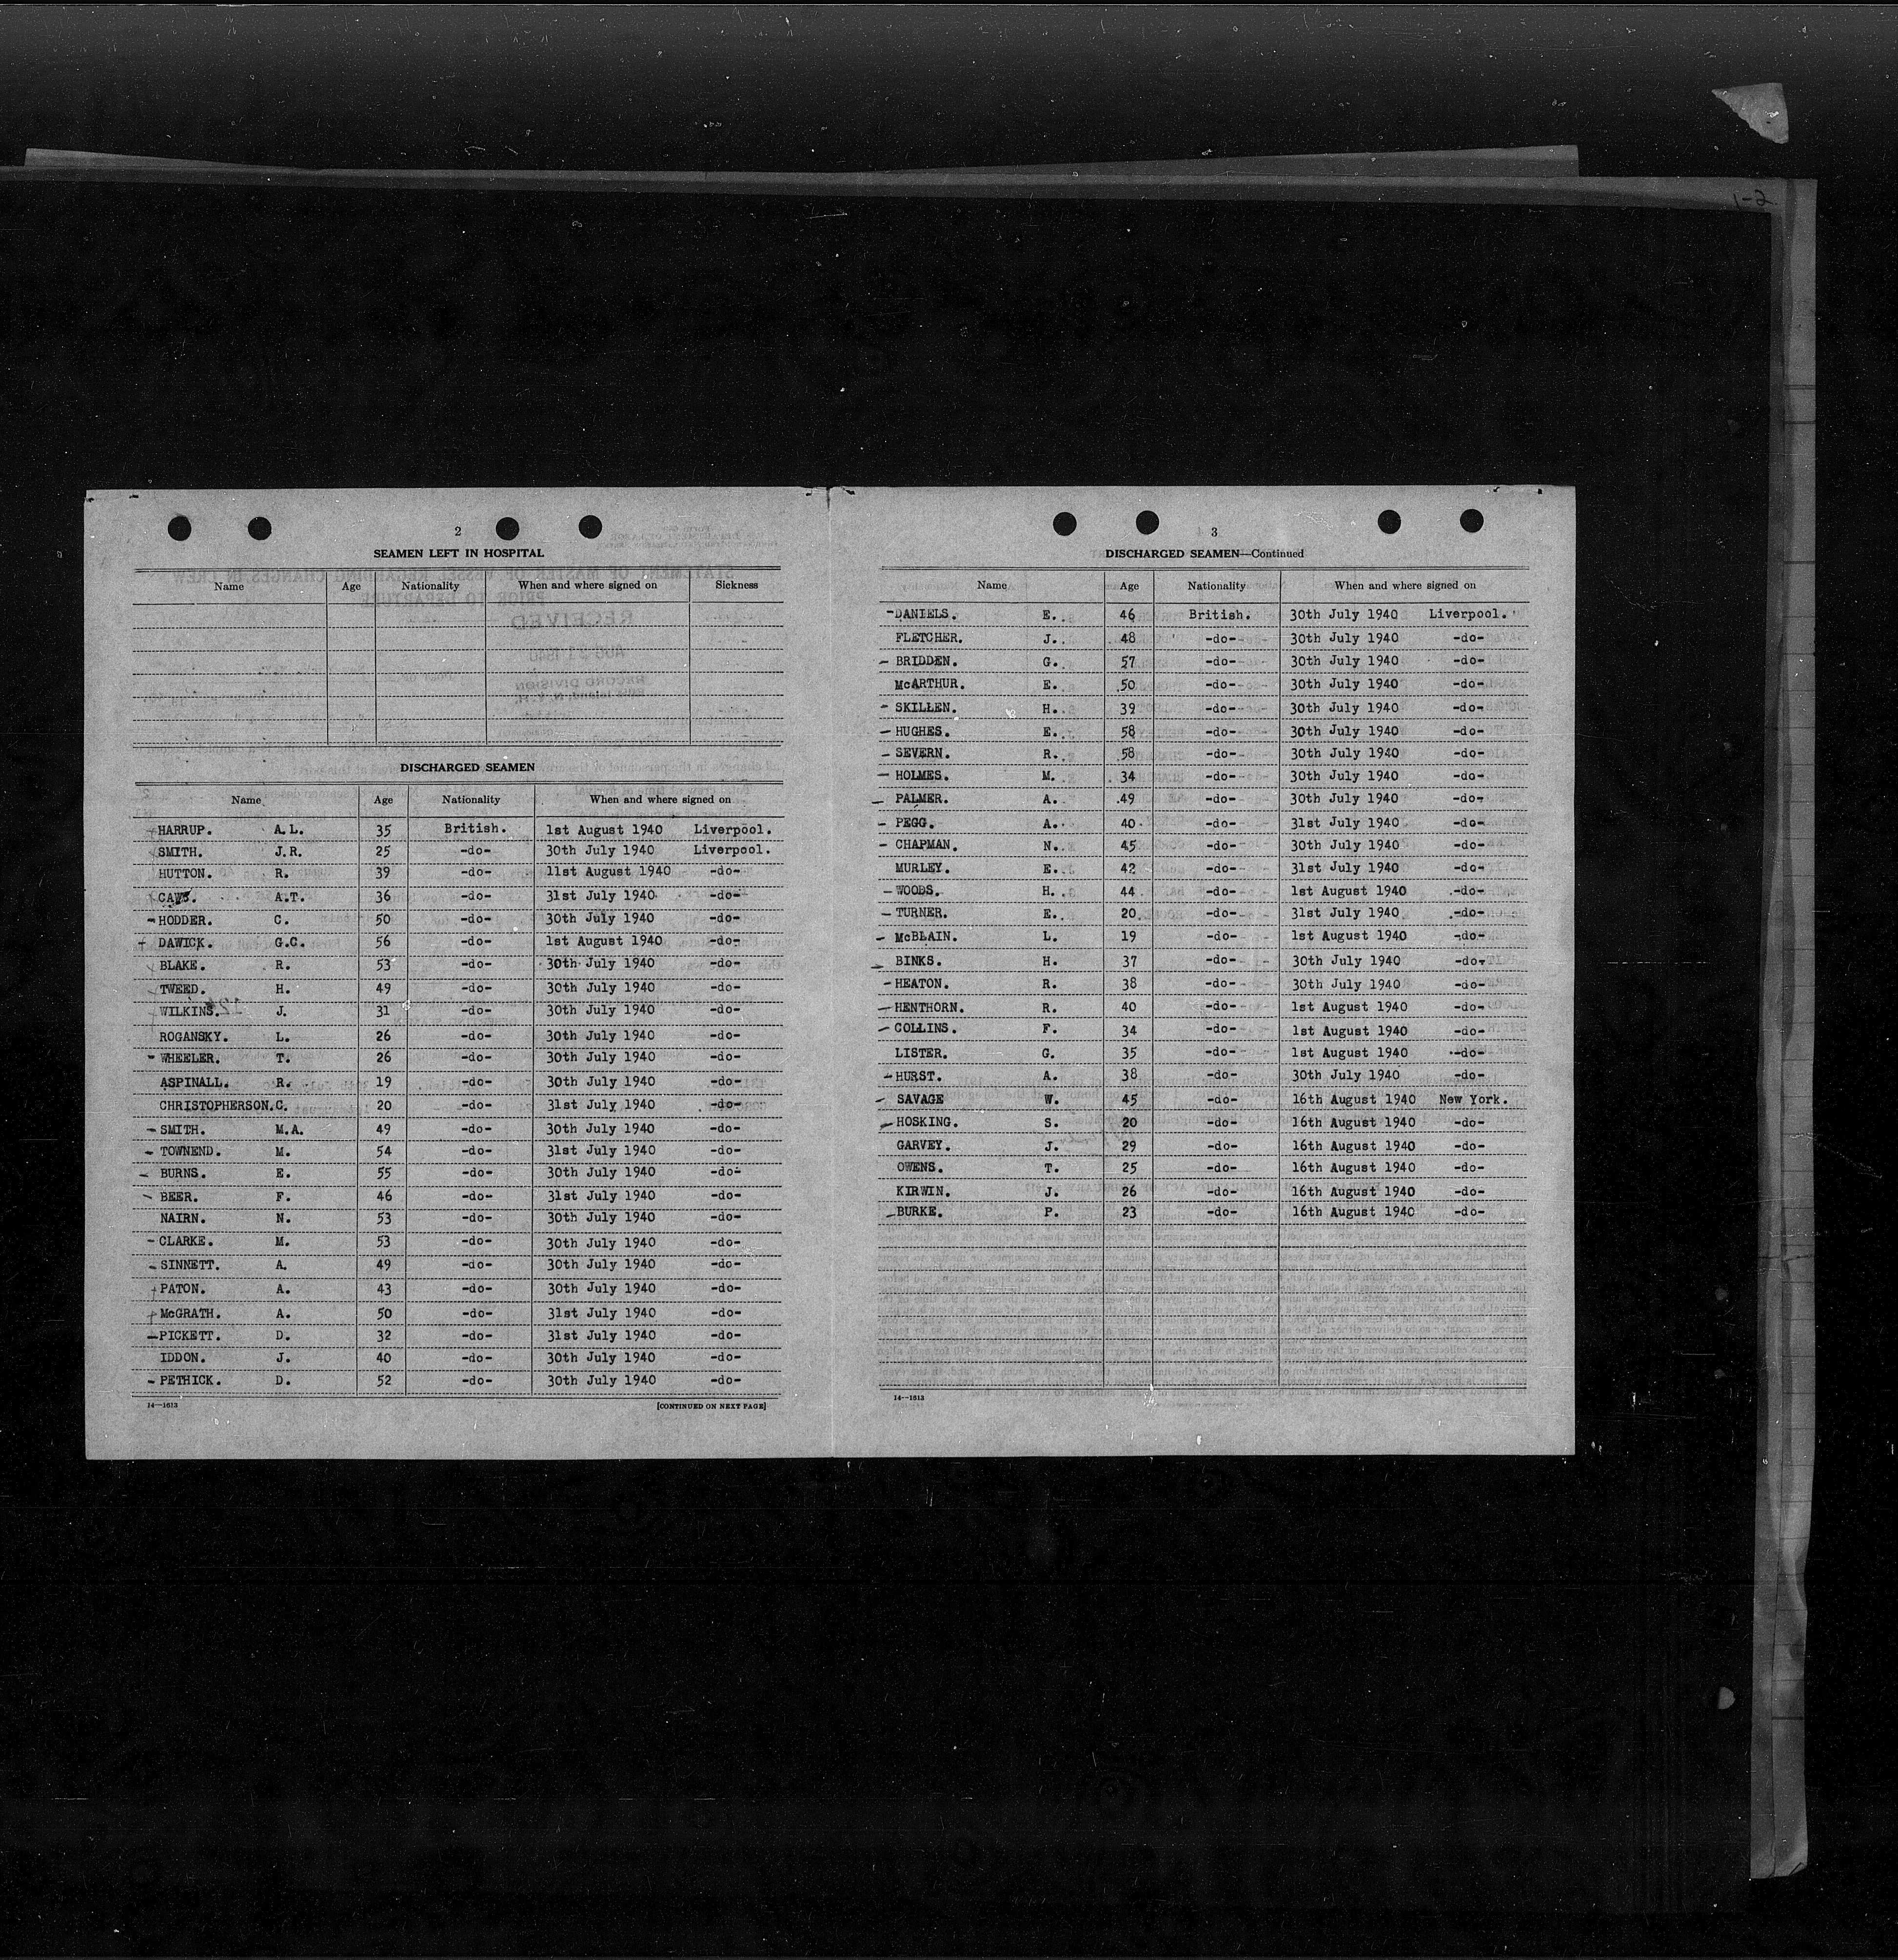 1-2
2
SEAMEN LEFT IN HOSPITAL
Name Age Nationality When and where signed on Sickness
DISCHARGED SEAMEN
Name Age Nationality When and where signed on
HARRUP. A.L. 35 British. 1st August 1940 Liverpool.
SMITH. J.R. 25 -do- 30th July 1940 Liverpool.
HUTTON. R. 39 -do- 11st August 1940 -do-
A.T. 36 -do- 31st July 1940 -do-
HODDER. C. 50 -do- 30th July 1940 -do-
DAWICK. G.C. 56 -do- 1st August 1940 -do-
BLAKE. R. 53 -do- 30th July 1940 -do-
TWEED. H. 49 -do- 30th July 1940 -do-
WILKINS. J. 31 -do- 30th July 1940 -do-
ROGANSKY. L. 26 -do- 30th July 1940 -do-
WHEELER. T. 26 -do- 30th July 1940 -do-
ASPINALL. R. 19 -do- 30th July 1940 -do-
CHRISTOPHERSON.C. 20 -do- 31st July 1940 -do-
SMITH. M.A. 49 -do- 30th July 1940 -do-
TOWNEND. M. 54 -do- 31st July 1940 -do-
BURNS. E. 55 -do- 30th July 1940 -do-
BEER. F. 46 -do- 31st July 1940 -do-
NAIRN. N. 53 -do- 30th July 1940 -do-
CLARKE. M. 53 -do- 30th July 1940 -do-
SINNETT. A. 49 -do- 30th July 1940 -do-
PATON. A. 43 -do- 30th July 1940 -do-
McGRATH. A. 50 -do- 31st July 1940 -do-
PICKETT. D. 32 -do- 31st July 1940 -do-
IDDON. J. 40 -do- 30th July 1940 -do-
PETHICK. D. 52 -do- 30th July 1940 -do-
14—1613 [CONTINUED ON NEXT PAGE]
3
DISCHARGED SEAMEN—Continued
Name Age Nationality When and where signed on
DANIELS. E. 46 British. 30th July 1940 Liverpool.
FLETCHER. J. 48 -do- 30th July 1940 -do-
BRIDDEN. G. 57 -do- 30th July 1940 -do-
McARTHUR. E. 50 -do- 30th July 1940 -do-
SKILLEN. H. 39 -do- 30th July 1940 -do-
HUGHES. E. 58 -do- 30th July 1940 -do-
SEVERN. R. 58 -do- 30th July 1940 -do-
HOLMES. M. 34 -do- 30th July 1940 -do-
PALMER. A. 49 -do- 30th July 1940 -do-
PEGG. A. 40 -do- 31st July 1940 -do-
CHAPMAN. N. 45 -do- 30th July 1940 -do-
MURLEY. E. 42 -do- 31st July 1940 -do-
WOODS. H. 44 -do- 1st August 1940 -do-
TURNER. E. 20 -do- 31st July 1940 -do-
McBLAIN. L. 19 -do- 1st August 1940 -do-
BINKS. H. 37 -do- 30th July 1940 -do-
HEATON. R. 38 -do- 30th July 1940 -do-
HENTHORN. R. 40 -do- 1st August 1940 -do-
COLLINS. F. 34 -do- 1st August 1940 -do-
LISTER. G. 35 -do- 1st August 1940 -do-
HURST. A. 38 -do- 30th July 1940 -do-
SAVAGE W. 45 -do- 16th August 1940 New York.
HOSKING. S. 20 -do- 16th August 1940 -do-
GARVEY. J. 29 -do- 16th August 1940 -do-
OWENS. T. 25 -do- 16th August 1940 -do-
KIRWIN. J. 26 -do- 16th August 1940 -do-
BURKE. P. 23 -do- 16th August 1940 -do-
14—1613